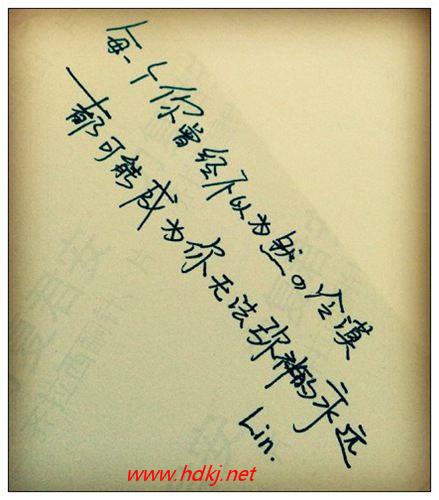 每一个你曾经不以为然の冷漠
都可能成为你无法弥补的永远
Lin.
www.hdkj.net